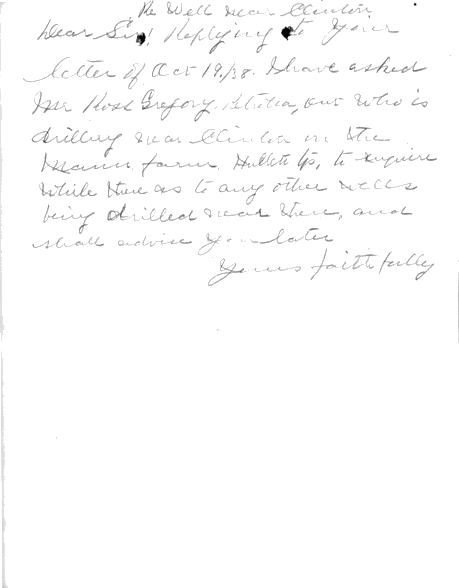 Re Well near Clinton
Dear Sir, Replying to your
letter of Oct 19/38. I have asked
Mr Ross Gregory, ont who is
drilling near Clinton on the
Mann farm Hullett Tp, to enquire
while there as to any other wells
being drilled near there, and
shall advise you later
Yours faithfully